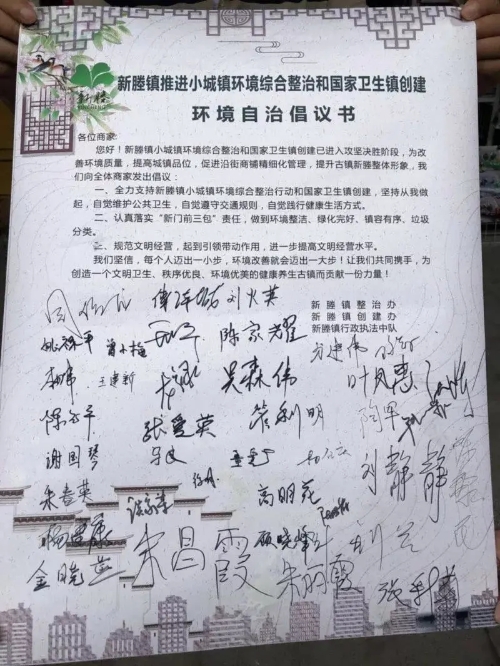 新塍
新塍镇推进小城镇环境综合整治和国家卫生镇创建
环境自治倡议书
各位商家:
您好！新塍镇小城镇环境综合整治和国家卫生镇创建已进入攻坚决胜阶段，为改
善环境质量，提高城镇品位，促进沿街商铺精细化管理，提升古镇新塍整体形象，我
们向全体商家发出倡议：
一、全力支持新塍镇小城镇环境综合整治行动和国家卫生镇创建，坚持从我做
起，自觉维护公共卫生，自觉遵守交通规则，自觉践行健康生活方式。
二、认真落实“新门前三包”责任，做到环境整洁、绿化完好、镇容有序、垃圾
分类。
三、规范文明经营，起到引领带动作用，进一步提高文明经营水平。
我们坚信，每个人迈出一小步，环境改善就会迈出一大步！让我们共同携手，为
创造一个文明卫生、秩序优良、环境优美的健康养生古镇而贡献一份力量！
新塍镇整治办
新塍镇创建办
新塍镇行政执法中队
刘火英
陈家耀
王建新
吴森伟
叶凤惠
陈永平
张爱英
管利明
陶军
谢国琴
刘静静
朱春英
高明花
朱昌霞
顾晓峰
刘兰
金晓燕
朱丽霞